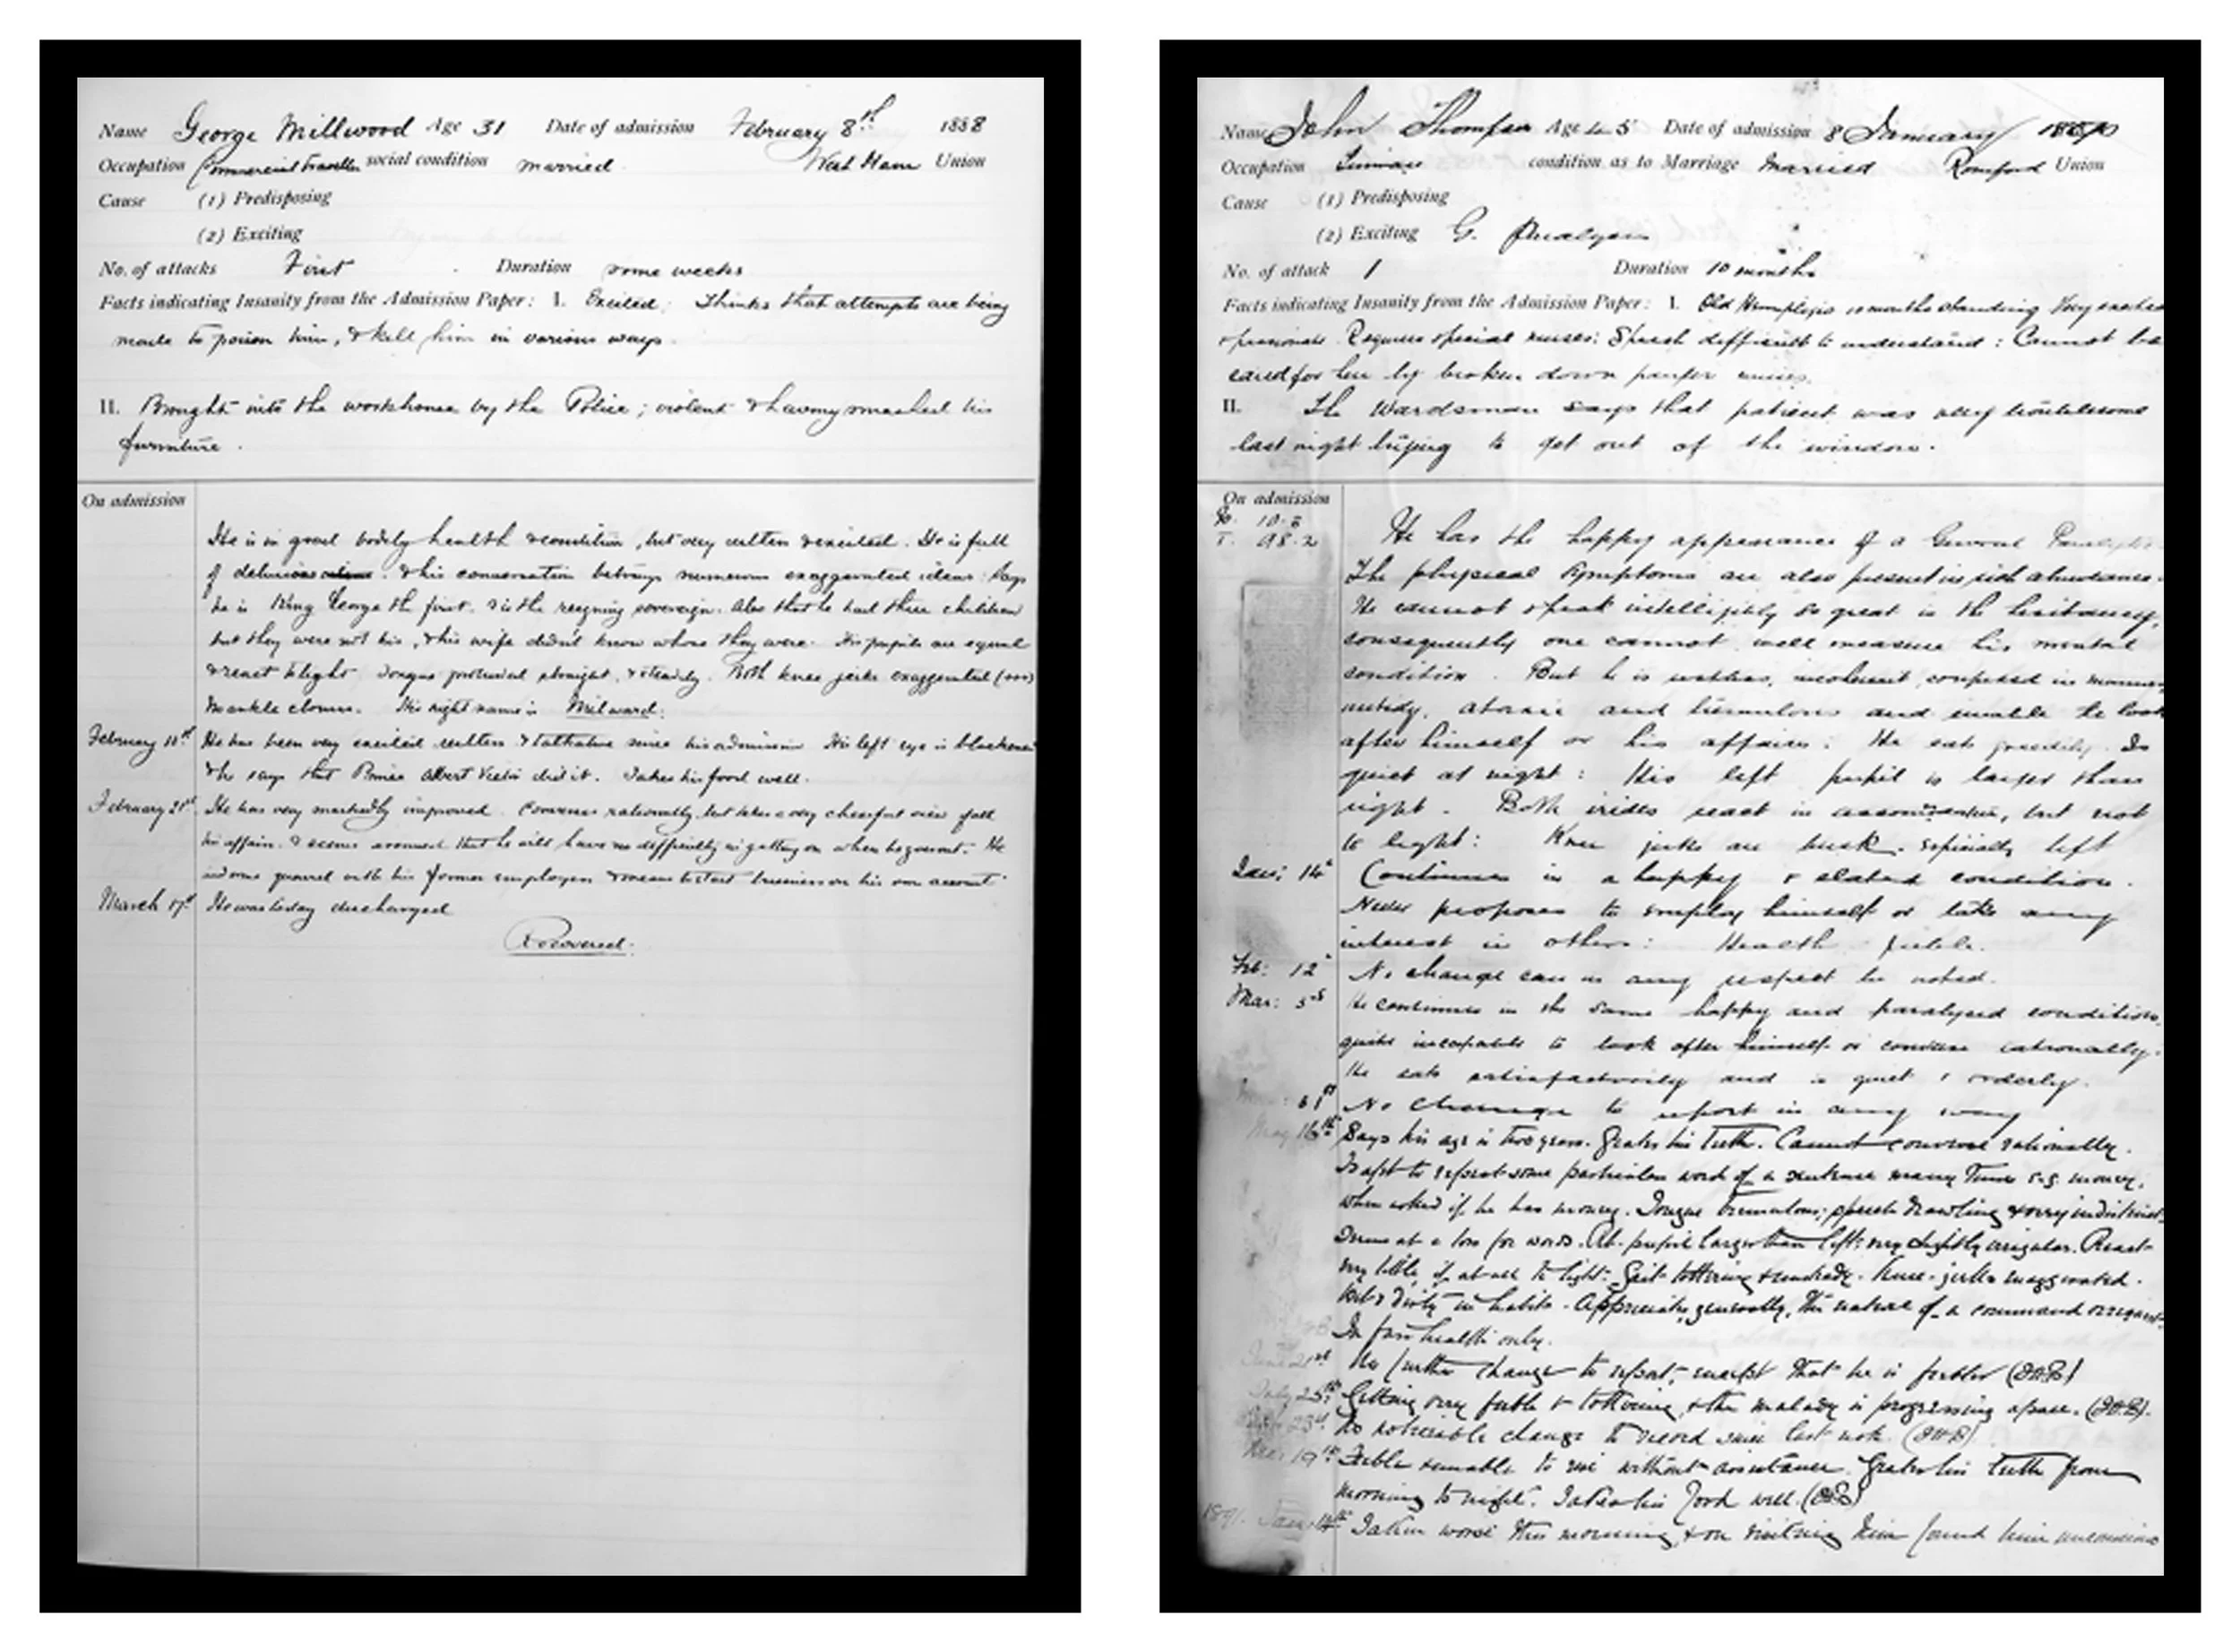 Name George Millwood Age 31 Date of admission February 8th 1888
Occupation Commercial Traveller social condition married West Ham Union
Cause (1) Predisposing
(2) Exciting
No. of attacks First Duration some weeks
Facts indicating Insanity from the Admission Paper: I. Excited. Thinks that attempts are being
made to poison him, & kill him in various ways.
II. Brought into the workhouse by the Police; violent & having smashed his
furniture.
On admission
He is in good bodily health & condition, but very restless & excited. He is full
of delusions & his conversation betrays numerous exaggerated ideas. Says
he is King George the first. & is the reigning sovereign. Also that he had three children
but they were not his, & his wife didn't know whose they were. His pupils are equal
& react to light. Tongue protruded straight, & steadily. Both knee jerks exaggerated
No ankle clonus. His right name is Milward.
February 11th He has been very excited restless & talkative since his admission His left eye is blackened
& he says that Prince Albert Victor did it. Takes his food well.
February 21st He has very markedly improved. Converses rationally, but takes a very cheerful view of all
his affairs. & seems assured that he will have no difficulty in getting on when he goes out. He
quarrel with his former employers & means to start business on his own account
March 17th He was today discharged
Recovered.
Name John Thompson Age 45 Date of admission 8 January
Occupation condition as to Marriage Married Romford Union
Cause (1) Predisposing
(2) Exciting G. Paralysis
No. of attack 1 Duration 10 months
Facts indicating Insanity from the Admission Paper: I. Old Hemiplegia 10 months standing Very excited
& passionate. Requires special nurses: Speech difficult to understand: Cannot be
cared for here by broken down pauper nurses.
II. The Wardsman says that patient was very troublesome
last night trying to get out of the window.
On admission
T. 98.2
He has the happy appearance of a General Paralytic
The physical symptoms are also present in rich abundance.
He cannot speak intelligibly so great is the hesitancy,
consequently one cannot well measure his mental
condition. But he is restless, incoherent, confused in manner,
untidy, ataxic and tremulous and unable to look
after himself or his affairs: He eats greedily. Is
quiet at night: His left pupil is larger than
right. Both irides react in accommodation, but not
to light: Knee jerks are brisk. especially left
Jan: 14 Continues in a happy & elated condition.
Never proposes to employ himself or take any
interest in others: Health feeble.
Feb: 12 No change can in any respect be noted.
Mar: 5 He continues in the same happy and paralysed condition,
quite incapable to look after himself or converse rationally.
He eats satisfactorily and is quiet & orderly.
31st No change to report in any way
May 16th Says his age is two years. Grates his teeth. Cannot converse rationally.
Is apt to repeat some particular word of a sentence many times e.g. money,
when asked if he has money. Tongue tremulous; speech drawling & very indistinct.
Seems at a loss for words. Rt. pupil larger than left: very slightly irregular. React
very little, if at all to light. Gait tottering & unsteady. Knee-jerks exaggerated.
Wet & dirty in habits. Appreciates, generally, the nature of a command or request.
In fair health only.
June 21st No further change to report, except that he is feebler
July 25th Getting very feeble & tottering, & the malady is progressing apace.
23rd No noticeable change to record since last note.
19th Feeble & unable to rise without assistance. Grates his teeth from
morning to night. Takes his food well.
1891. Jan. 14th Taken worse this morning, & on visiting him found him unconscious